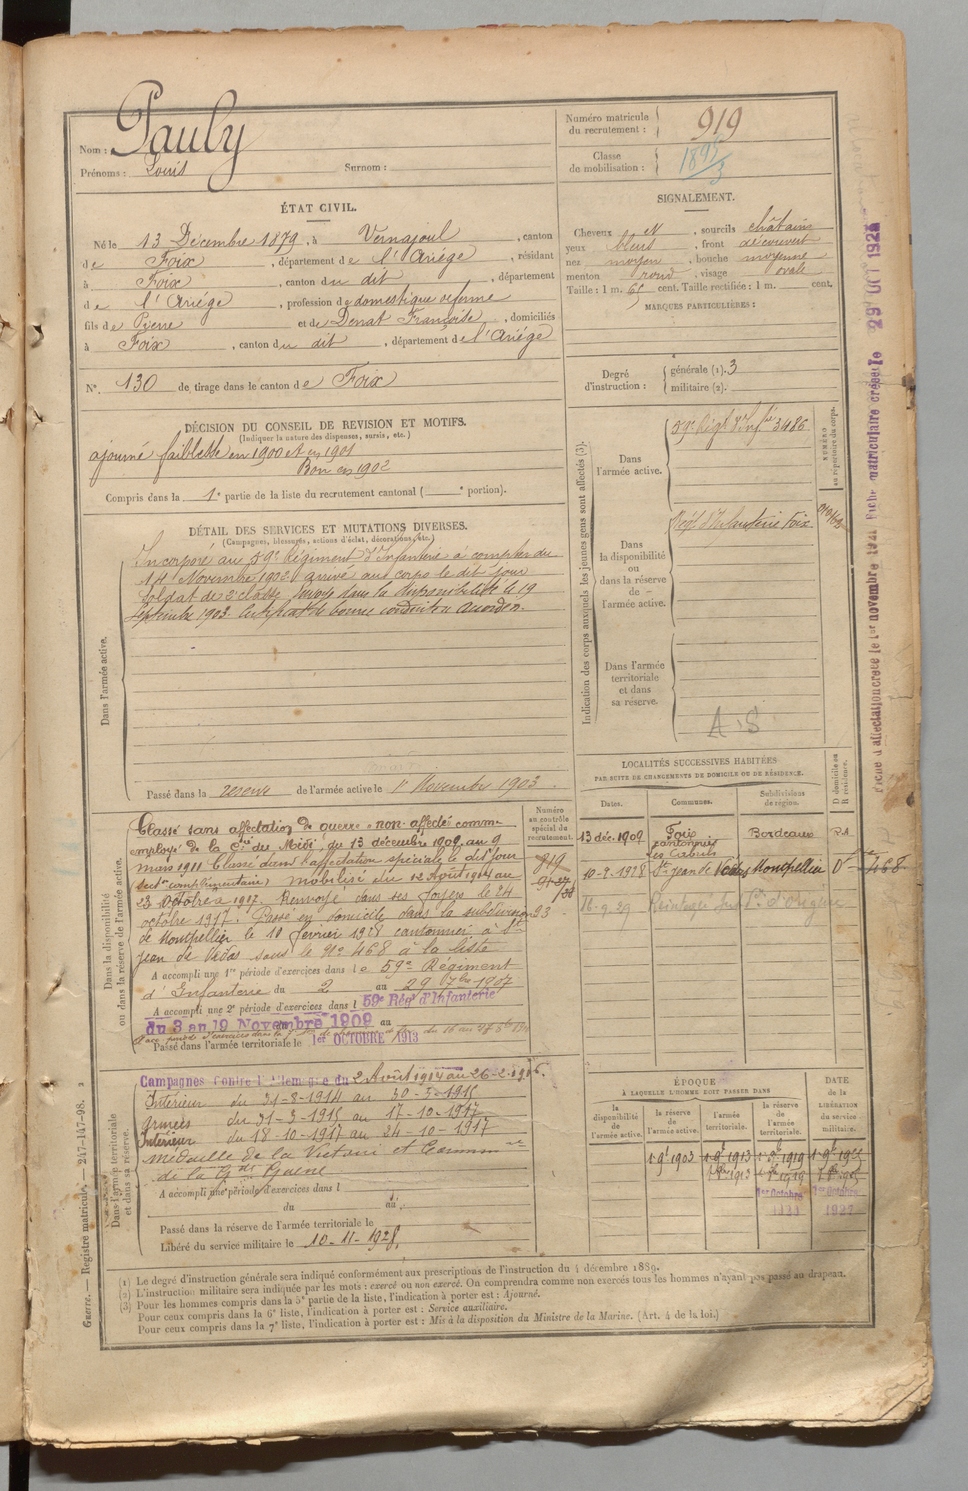 Nom : Pauly
Prénoms : Louis Surnom :
Numéro matricule du recrutement : 919
Classe de mobilisation :
ÉTAT CIVIL.
Né le 13 Décembre 1879, à Vernajoul, canton
de Foix, département de l'Ariège, résidant
à Foix, canton du dit, département
de l'Ariège, profession de domestique referme
fils de Pierre et de Denat Françoise, domiciliés
à Foix, canton du dit, département de l'Ariége
N°. 130 de tirage dans le canton de Foix
SIGNALEMENT.
Cheveux N, sourcils châtains
yeux bleus, front découvert
nez moyen, bouche moyenne
menton rond, visage ovale
Taille : 1 m. 65 cent. Taille rectifiée : 1 m. cent.
MARQUES PARTICULIÈRES :
Degré d'instruction : générale (1). 3
militaire (2).
DÉCISION DU CONSEIL DE REVISION ET MOTIFS.
(Indiquer la nature des dispenses, sursis, etc.)
ajourné faiblesse en 1900 et en 1901
Bon en 1902
Compris dans la 1e partie de la liste du recrutement cantonal ( e portion).
DÉTAIL DES SERVICES ET MUTATIONS DIVERSES.
(Campagnes, blessures, actions d'éclat, décorations, etc.)
Dans l'armée active.
Incorporé au 59e Régiment d'Infanterie à compter du
14 Novembre 1902. arrivé au corps le dit jour
Soldat de 2e classe. Envoyé dans la disponibilité le 19
Septembre 1903. Certificat de bonne conduite accordé.
Passé dans la réserve de l'armée active le 1er Novembre 1903.
Indication des corps auxquels les jeunes gens sont affectés (3).
NUMÉRO au répertoire du corps.
Dans l'armée active.
59e Régt d'Infie 3486
Dans la disponibilité ou dans la réserve de l'armée active.
Régt d'Infanterie Foix
Dans l'armée territoriale et dans sa réserve.
A.S
Fiche d'affectation créée le 1er novembre 1921 Fiche matriculaire créée le
LOCALITÉS SUCCESSIVES HABITÉES
PAR SUITE DE CHANGEMENTS DE DOMICILE OU DE RÉSIDENCE.
Dates. Communes. Subdivisions de région. D domicile ou R résidence.
13 déc. 1909 Foix cantonnier Bordeaux
10-2-1928 St jean de Vedas Montpellier D 468
16-9-29
Numéro au contrôle spécial du recrutement.
919
Dans la disponibilité ou dans la réserve de l'armée active.
Classé sans affectation de guerre "non affecté comme
employé de la Cie du Midi, du 13 décembre 1909 au 9
mars 1911 Classé dans l'affectation spéciale le dit jour
(sect complimentaire) mobilisé du 12 Août 1914 au
23 Octobre 1917. Renvoyé dans ses foyers le 24
octobre 1917. Passé en domicile dans la subdivision
de Montpellier le 10 fevrier 1928 cantonnier à St
jean de Vedas sous le N° 468 à la liste
A accompli une 1re période d'exercices dans le 59e Régiment
d'Infanterie du 2 au 29 7bre 1907
A accompli une 2e période d'exercices dans l 59e Régt d'Infanterie
du 3 au 19 Novembre 1909 au
Passé dans l'armée territoriale le 1er OCTOBRE 1913
Dans l'armée territoriale et dans sa réserve.
Campagnes contre l'Allemagne du 2 Août 1914 au 26-2-1916.
Intérieur du 31-8-1914 au 30-3-1915
Armées du 31-3-1915 au 17-10-1917
Intérieur du 18-10-1917 au 24-10-1917
Médaille de la Victoire et Commve
de la Gde Guerre
A accompli une période d'exercices dans l
du au
Passé dans la réserve de l'armée territoriale le
Libéré du service militaire le 10-11-1928.
ÉPOQUE
À LAQUELLE L'HOMME DOIT PASSER DANS
DATE de la LIBÉRATION du service militaire.
la disponibilité de l'armée active. la réserve de l'armée active. l'armée territoriale. la réserve de l'armée territoriale.
1 9bre 1903 1 9bre 1913 1 9bre 1919
1er Octobre 1er Octobre
(1) Le degré d'instruction générale sera indiqué conformément aux prescriptions de l'instruction du 4 décembre 1889.
(2) L'instruction militaire sera indiquée par les mots : exercé ou non exercé. On comprendra comme non exercés tous les hommes n'ayant pas passé au drapeau.
(3) Pour les hommes compris dans la 5e partie de la liste, l'indication à porter est : Ajourné.
Pour ceux compris dans la 6e liste, l'indication à porter est : Service auxiliaire.
Pour ceux compris dans la 7e liste, l'indication à porter est : Mis à la disposition du Ministre de la Marine. (Art. 4 de la loi.)
Guerre. — Registre matricule. 247-147-98.